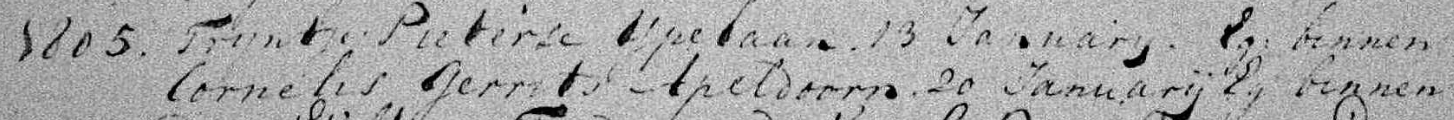 1805. Tryntje Pieterse Ypelaan. 13 January. Eg: binnen
Cornelis Gerrits Apeldoorn. 20 Januarij Eg binnen